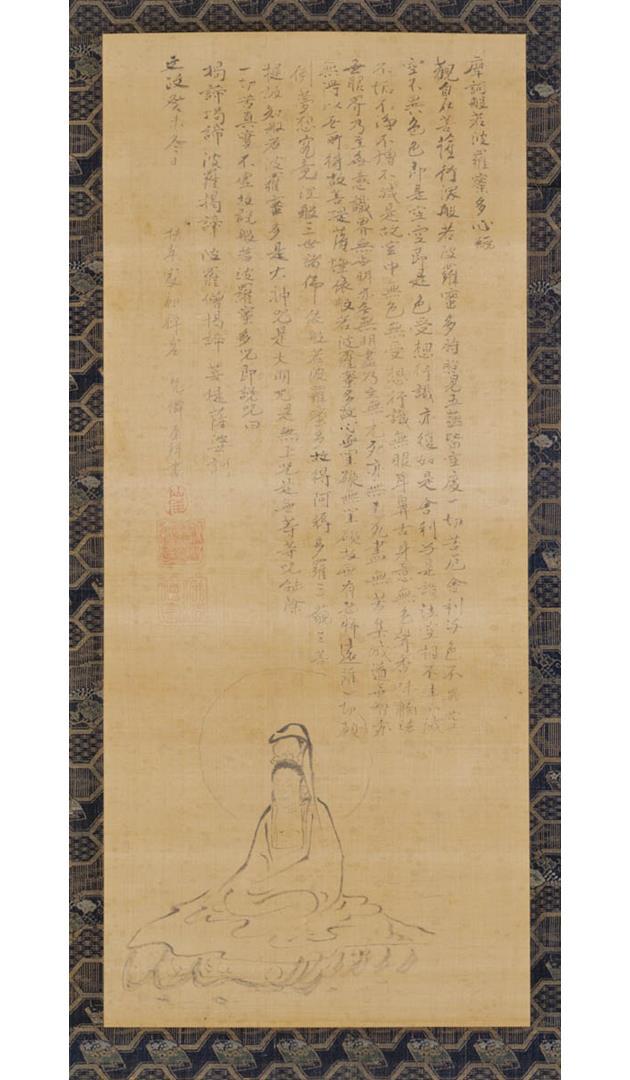 摩訶般若波羅蜜多心經
觀自在菩薩行深般若波羅蜜多時照見五蘊皆空度一切苦厄舍利子色不異空
空不異色色即是空空即是色受想行識亦復如是舍利子是諸法空相不生不滅
不垢不淨不增不減是故空中無色無受想行識無眼耳鼻舌身意無色聲香味觸法
無眼界乃至無意識界無無明亦無無明盡乃至無老死亦無老死盡無苦集滅道無智亦
無得以無所得故菩提薩埵依般若波羅蜜多故心無罣礙無罣礙故無有恐怖遠離一切顛
倒夢想究竟涅槃三世諸佛依般若波羅蜜多故得阿耨多羅三藐三菩
提故知般若波羅蜜多是大神咒是大明咒是無上咒是無等等咒能除
一切苦真實不虛故說般若波羅蜜多咒即說咒曰
揭諦揭諦波羅揭諦波羅僧揭諦菩提薩婆訶
文政癸未冬日